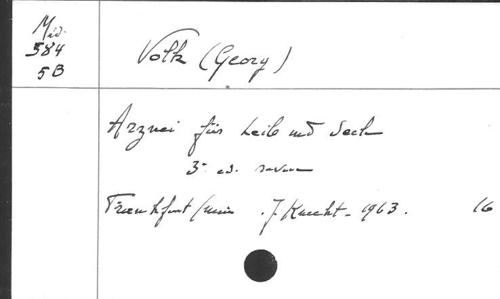 Med.
584
5B
Volk (Georg)
Arznei für Leib und Seele
3ª ed.
Frankfurt/Main . J. Knecht - 1963 . 16